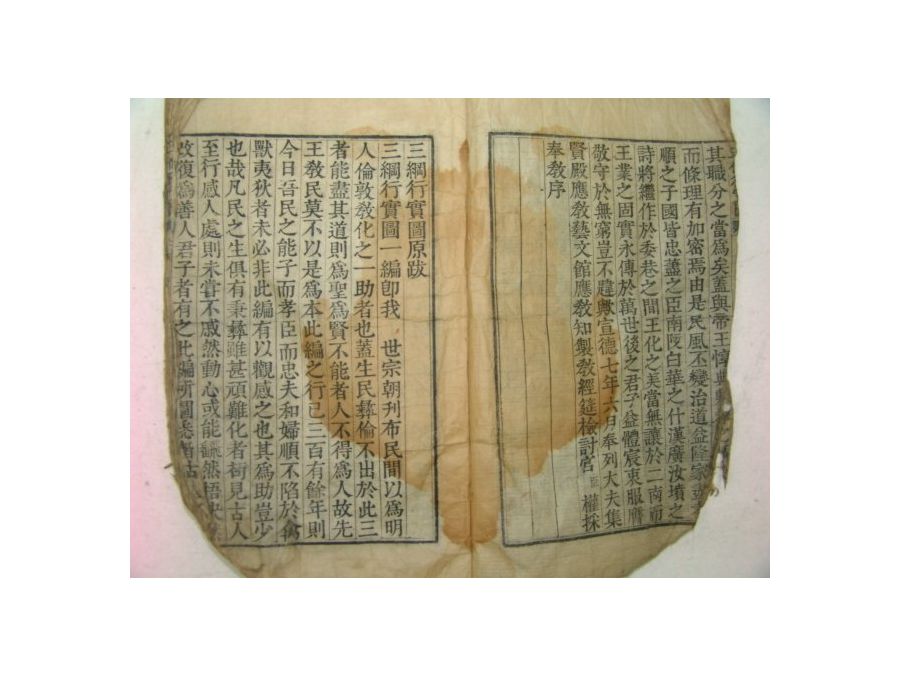 其職分之當爲矣蓋與帝王惇典
而條理有加密焉由是民風丕變治道益隆家
順之子國皆忠藎之臣南陔白華之什漢廣汝墳之
詩將繼作於委巷之間王化之美當無讓於二南而
王業之固實永傳於萬世後之君子益體宸衷服膺
敬守於無窮豈不韙歟宣德七年六月奉列大夫集
賢殿應敎藝文館應敎知製敎經筵檢討官臣權採
奉敎序
三綱行實圖原跋
三綱行實圖一編卽我 世宗朝刊布民間以爲明
人倫敦敎化之一助者也蓋生民彝倫不出於此三
者能盡其道則爲聖爲賢不能者人不得爲人故先
王敎民莫不以是爲本此編之行已三百有餘年則
今日吾民之能子而孝臣而忠夫和婦順不陷於禽
獸夷狄者未必非此編有以觀感之也其爲助豈少
也哉凡民之生俱有秉彝雖甚頑難化者苟見古人
至行感人處則未嘗不慼然動心或能飜然悟
改復爲善人君子者有之此編所圖悉皆古